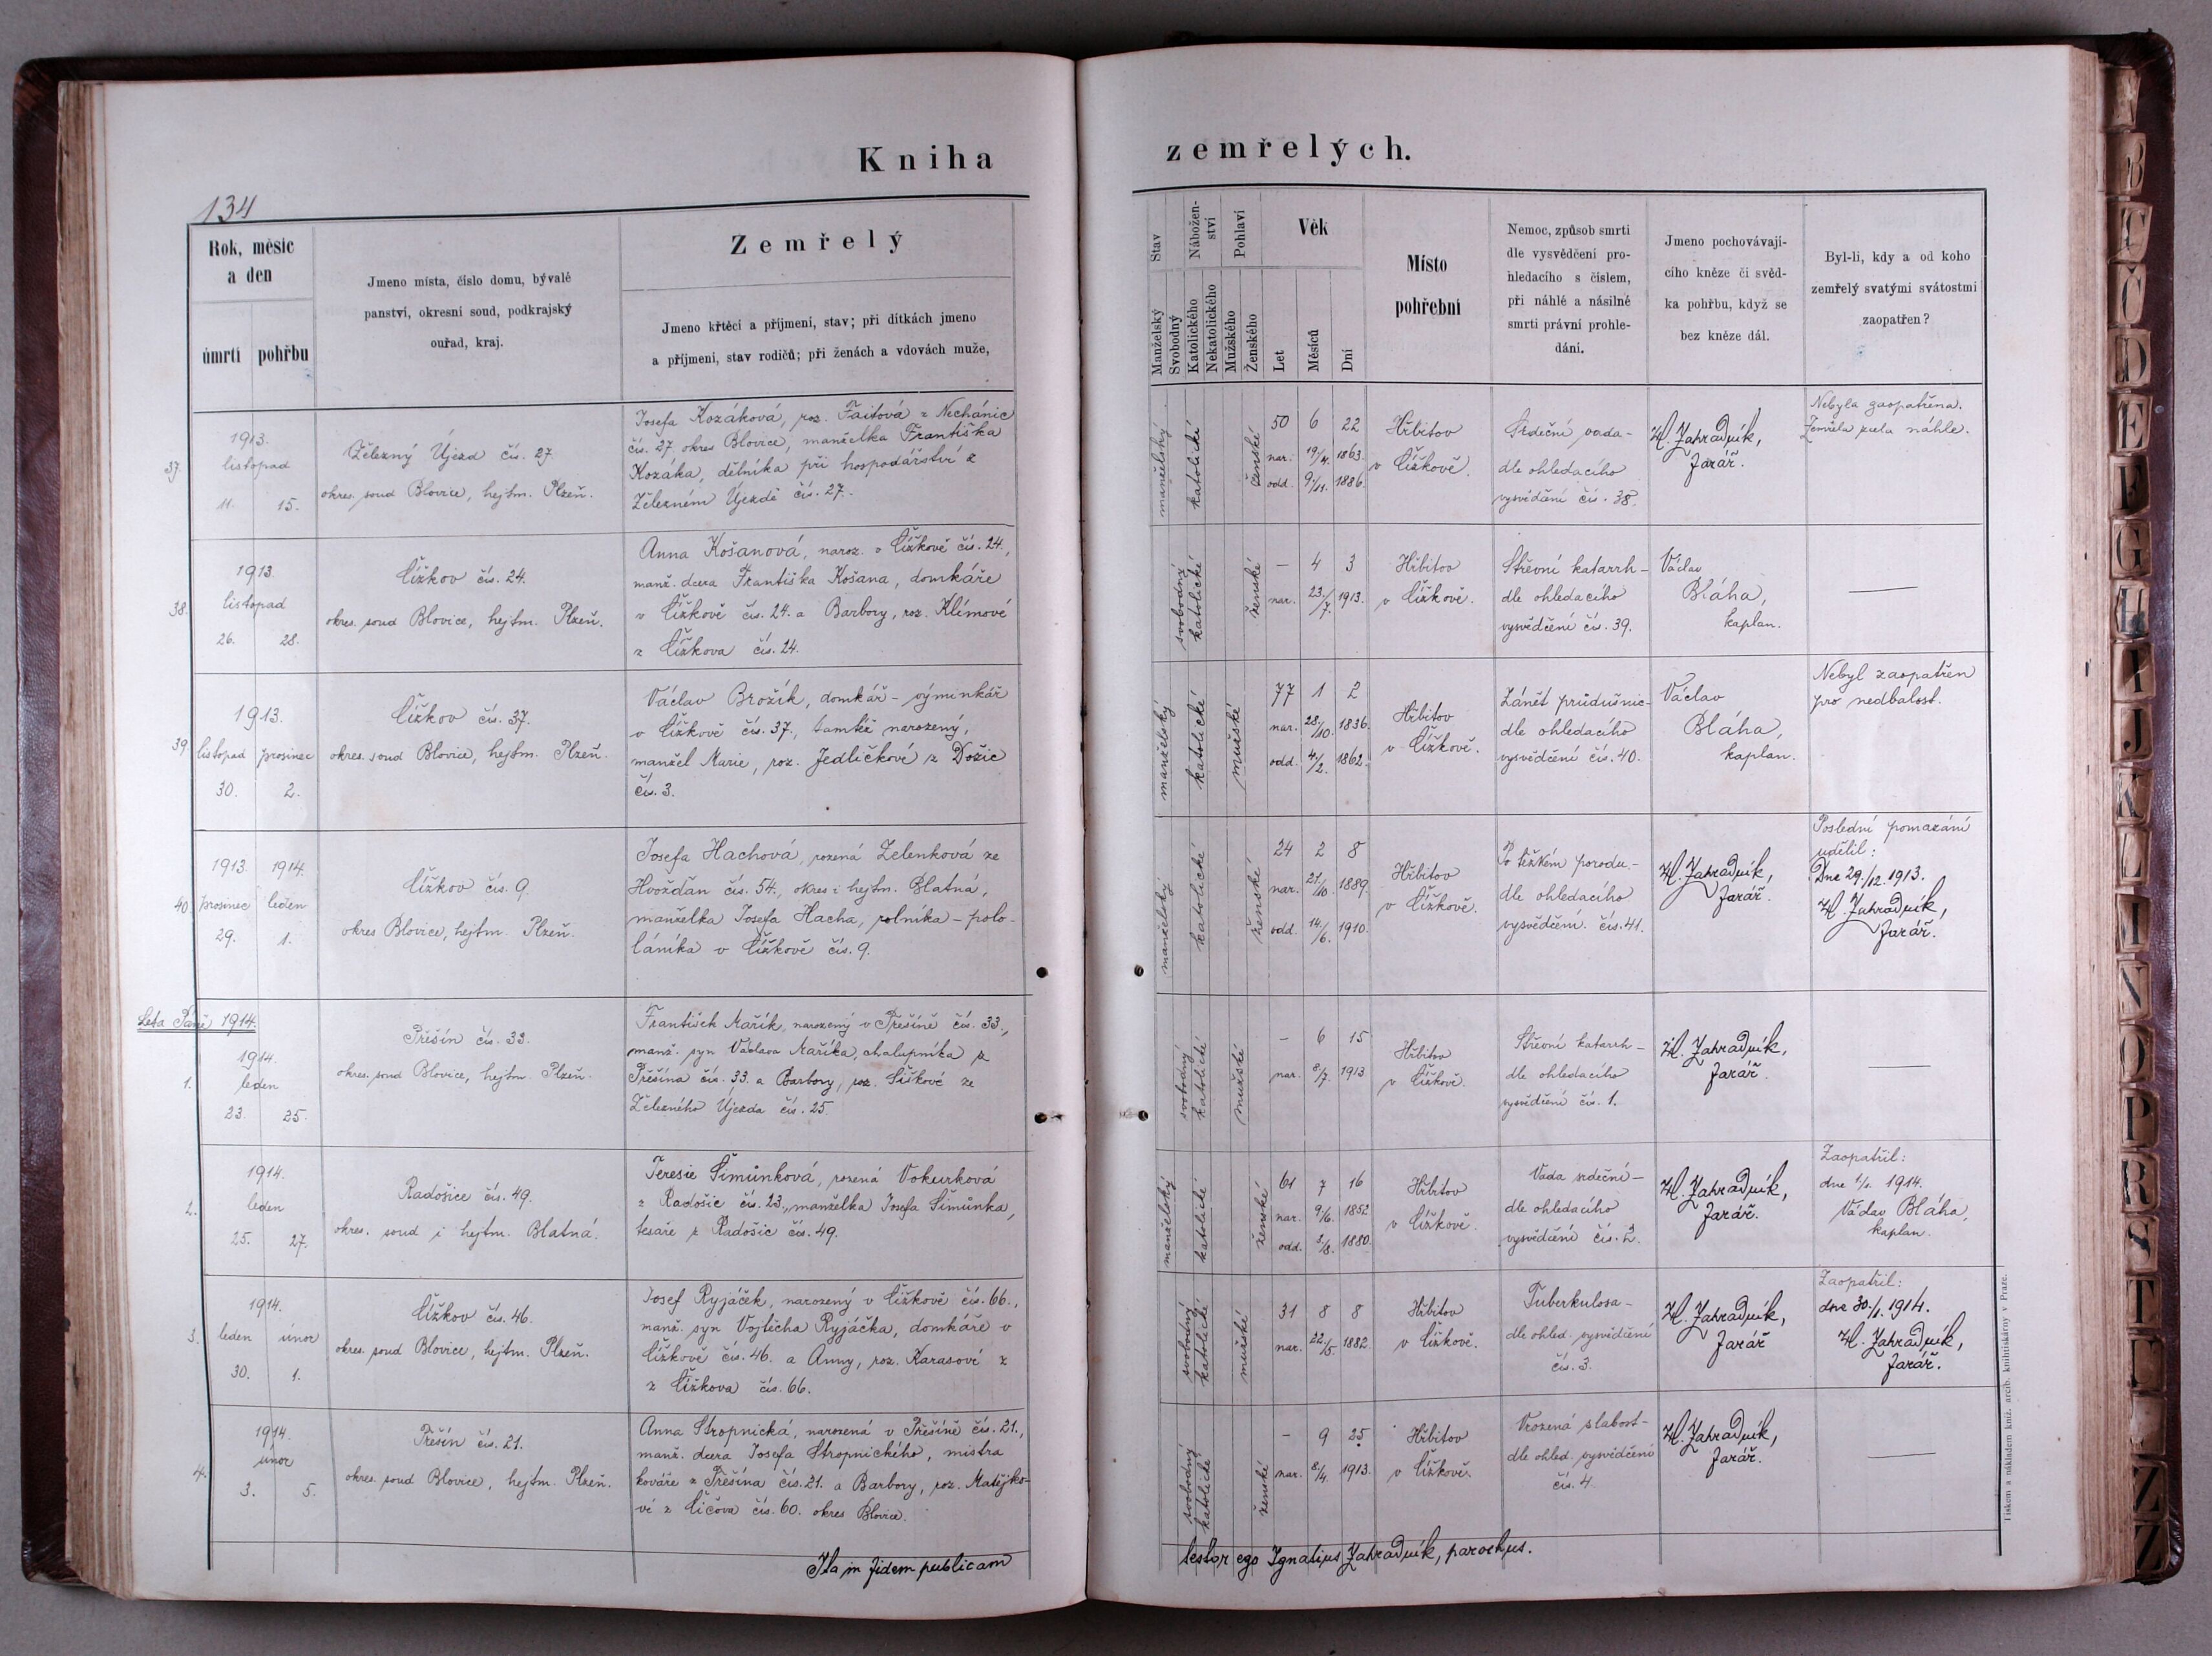 Kniha zemřelých.
134
Rok, měsíc
a den
úmrtí
pohřbu
Jmeno místa, číslo domu, bývalé
panství, okresní soud, podkrajský
ouřad, kraj.
Zemřelý
Jmeno křtěcí a příjmení, stav; při dítkách jmeno
a příjmení, stav rodičů; při ženách a vdovách muže,
Stav
Manželský
Svobodný
Nábožen-
ství
Katolického
Nekatolického
Pohlaví
Mužského
Ženského
Věk
Let
Měsíců
Dní
Místo
pohřební
Nemoc, způsob smrti
dle vysvědčení pro-
hledacího s číslem,
při náhlé a násilné
smrti právní prohle-
dání.
Jmeno pochovávají-
cího kněze či svěd-
ka pohřbu, když se
bez kněze dál.
Byl-li, kdy a od koho
zemřelý svatými svátostmi
zaopatřen?
37.
1913.
listopad
11. 15.
Železný Újezd čís. 27.
okres. soud Blovice, hejtm. Plzeň.
Josefa Kozáková, roz. Faitová z Nechánic
čís. 27. okres Blovice, manželka Františka
Kozáka, dělníka při hospodářství z
Železném Újezdě čís. 27.
manželský
katolické
ženské
50 6 22
nar. 19/4. 1863.
odd. 9/11. 1886.
Hřbitov
v Čížkově.
Srdeční vada -
dle ohledacího
vysvědčení čís. 38.
H. Zahradník,
farář.
Nebyla zaopatřena.
Zemřela zcela náhle.
38.
1913.
listopad
26. 28.
Čížkov čís. 24.
okres. soud Blovice, hejtm. Plzeň.
Anna Košanová, naroz. v Čížkově čís. 24.,
manž. dcera Františka Košana, domkáře
v Čížkově čís. 24. a Barbory, roz. Klímové
z Čížkova čís. 24.
svobodný
katolické
ženské
— 4 3
nar. 23./7. 1913.
Hřbitov
v Čížkově.
Střevní katarrh -
dle ohledacího
vysvědčení čís. 39.
Václav
Bláha,
kaplan.
—
39.
1913.
listopad prosinec
30. 2.
Čížkov čís. 37.
okres. soud Blovice, hejtm. Plzeň.
Václav Brožík, domkář - výminkář
v Čížkově čís. 37., tamtéž narozený,
manžel Marie, roz. Jedličkové z Dožic
čís. 3.
manželský
katolické
mužské
77 1 2
nar. 28./10. 1836.
odd. 4/2. 1862.
Hřbitov
v Čížkově.
Zánět průdušnic -
dle ohledacího
vysvědčení čís. 40.
Václav
Bláha,
kaplan.
Nebyl zaopatřen
pro nedbalost.
40.
1913. 1914.
prosinec leden
29. 1.
Čížkov čís. 9.
okres Blovice, hejtm. Plzeň.
Josefa Hachová, rozená Zelenková ze
Hvožďan čís. 54., okres i hejtm. Blatná,
manželka Josefa Hacha, rolníka - polo-
láníka v Čížkově čís. 9.
manželský
katolické
ženské
24 2 8
nar. 21./10 1889.
odd. 14/6. 1910.
Hřbitov
v Čížkově.
Po těžkém porodu -
dle ohledacího
vysvědčení. čís. 41.
H. Zahradník,
farář.
Poslední pomazání
udělil:
Dne 29./12. 1913.
H. Zahradník,
farář.
Léta Páně 1914.
1.
1914.
leden
23. 25.
Přešín čís. 33.
okres. soud Blovice, hejtm. Plzeň.
František Mařík, narozený v Přešíně čís. 33.,
manž. syn Václava Maříka, chalupníka z
Přešína čís. 33. a Barbory, roz. Šiškové ze
Železného Újezda čís. 25.
svobodný
katolické
mužské
- 6 15
nar. 8/7. 1913
Hřbitov
v Čížkově.
Střevní katarrh -
dle ohledacího
vysvědčení čís. 1.
H. Zahradník,
farář.
—
2.
1914.
leden
25. 27.
Radošice čís. 49.
okres. soud i hejtm. Blatná.
Teresie Šimůnková, rozená Vokurková
z Radošic čís. 23., manželka Josefa Šimůnka,
tesaře z Radošic čís. 49.
manželský
katolické
ženské
61 7 16
nar. 9/6. 1852
odd. 3/8. 1880.
Hřbitov
v Čížkově.
Vada srdeční -
dle ohledacího
vysvědčení čís. 2.
H. Zahradník,
farář.
Zaopatřil:
dne 1/1. 1914.
Václav Bláha,
kaplan.
3.
1914.
leden únor
30. 1.
Čížkov čís. 46.
okres. soud Blovice, hejtm. Plzeň.
Josef Ryjáček, narozený v Čížkově čís. 66.,
manž. syn Vojtěcha Ryjáčka, domkáře v
Čížkově čís. 46. a Anny, roz. Karasové z
z Čížkova čís. 66.
svobodný
katolické
mužské
31 8 8
nar. 22./5. 1882.
Hřbitov
v Čížkově.
Tuberkulosa -
dle ohled. vysvědčení
čís. 3.
H. Zahradník,
farář
Zaopatřil:
dne 30./1. 1914.
H. Zahradník,
farář.
4.
1914.
únor
3. 5.
Přešín čís. 21.
okres. soud Blovice, hejtm. Plzeň.
Anna Stropnická, narozená v Přešíně čís. 21.,
manž. dcera Josefa Stropnického, mistra
kováře z Přešína čís. 21. a Barbory, roz. Matějko-
vé z Číčova čís. 60. okres Blovice.
svobodný
katolické
ženské
- 9 25
nar. 8/4. 1913.
Hřbitov
v Čížkově.
Vrozená slabost -
dle ohled. vysvědčení
čís. 4.
H. Zahradník,
farář.
—
Ita in fidem publicam testor ego Ignatius Zahradník, parochus.
Tiskem a nákladem kníž. arcib. knihtiskárny v Praze.
B
C
Č
D
E
F
G
H
I
J
K
L
M
N
O
P
R
S
T
Z
Z